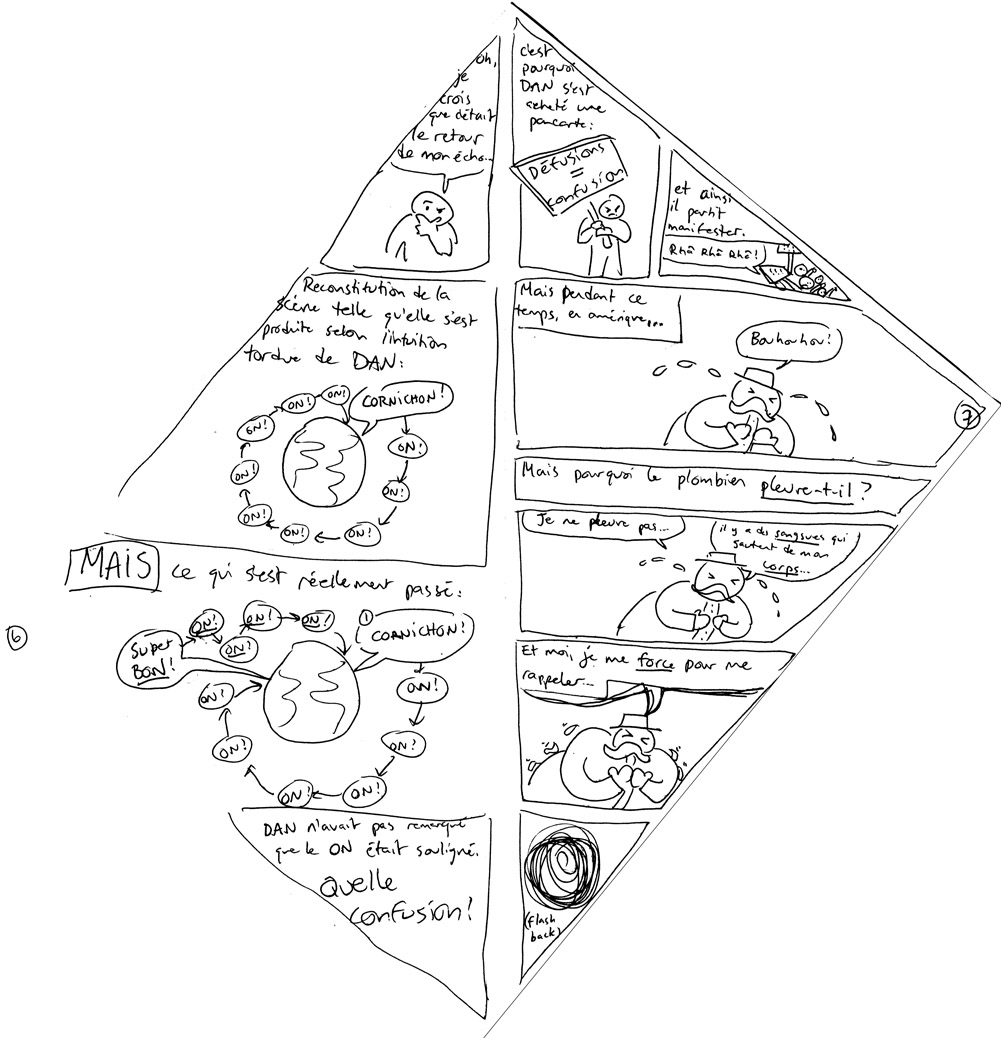 oh,
je
crois
que c'était
le retour
de mon écho...
Reconstitution de la
scène telle qu'elle s'est
produite selon l'intuition
tordue de DAN:
CORNICHON!
ON!
ON!
ON!
ON!
ON!
ON!
ON!
ON!
ON!
ON!
MAIS ce qui s'est réellement passé:
1
CORNICHON!
ON!
ON!
ON!
ON!
ON!
ON!
Super
BON!
ON!
ON!
ON!
ON!
DAN n'avait pas remarqué
que le ON était souligné.
Quelle
confusion!
6
c'est
pourquoi
DAN s'est
acheté une
pancarte:
Défusions
=
confusion
et ainsi
il partit
manifester.
Rhâ Rhâ Rhâ!
Mais pendant ce
temps, en amérique...
Bouhouhou!
7
Mais pourquoi le plombien pleure-t-il?
Je ne pleure pas...
il y a des sangsues qui
sautent de mon
corps...
Et moi, je me force pour me
rappeler...
(flash
back)